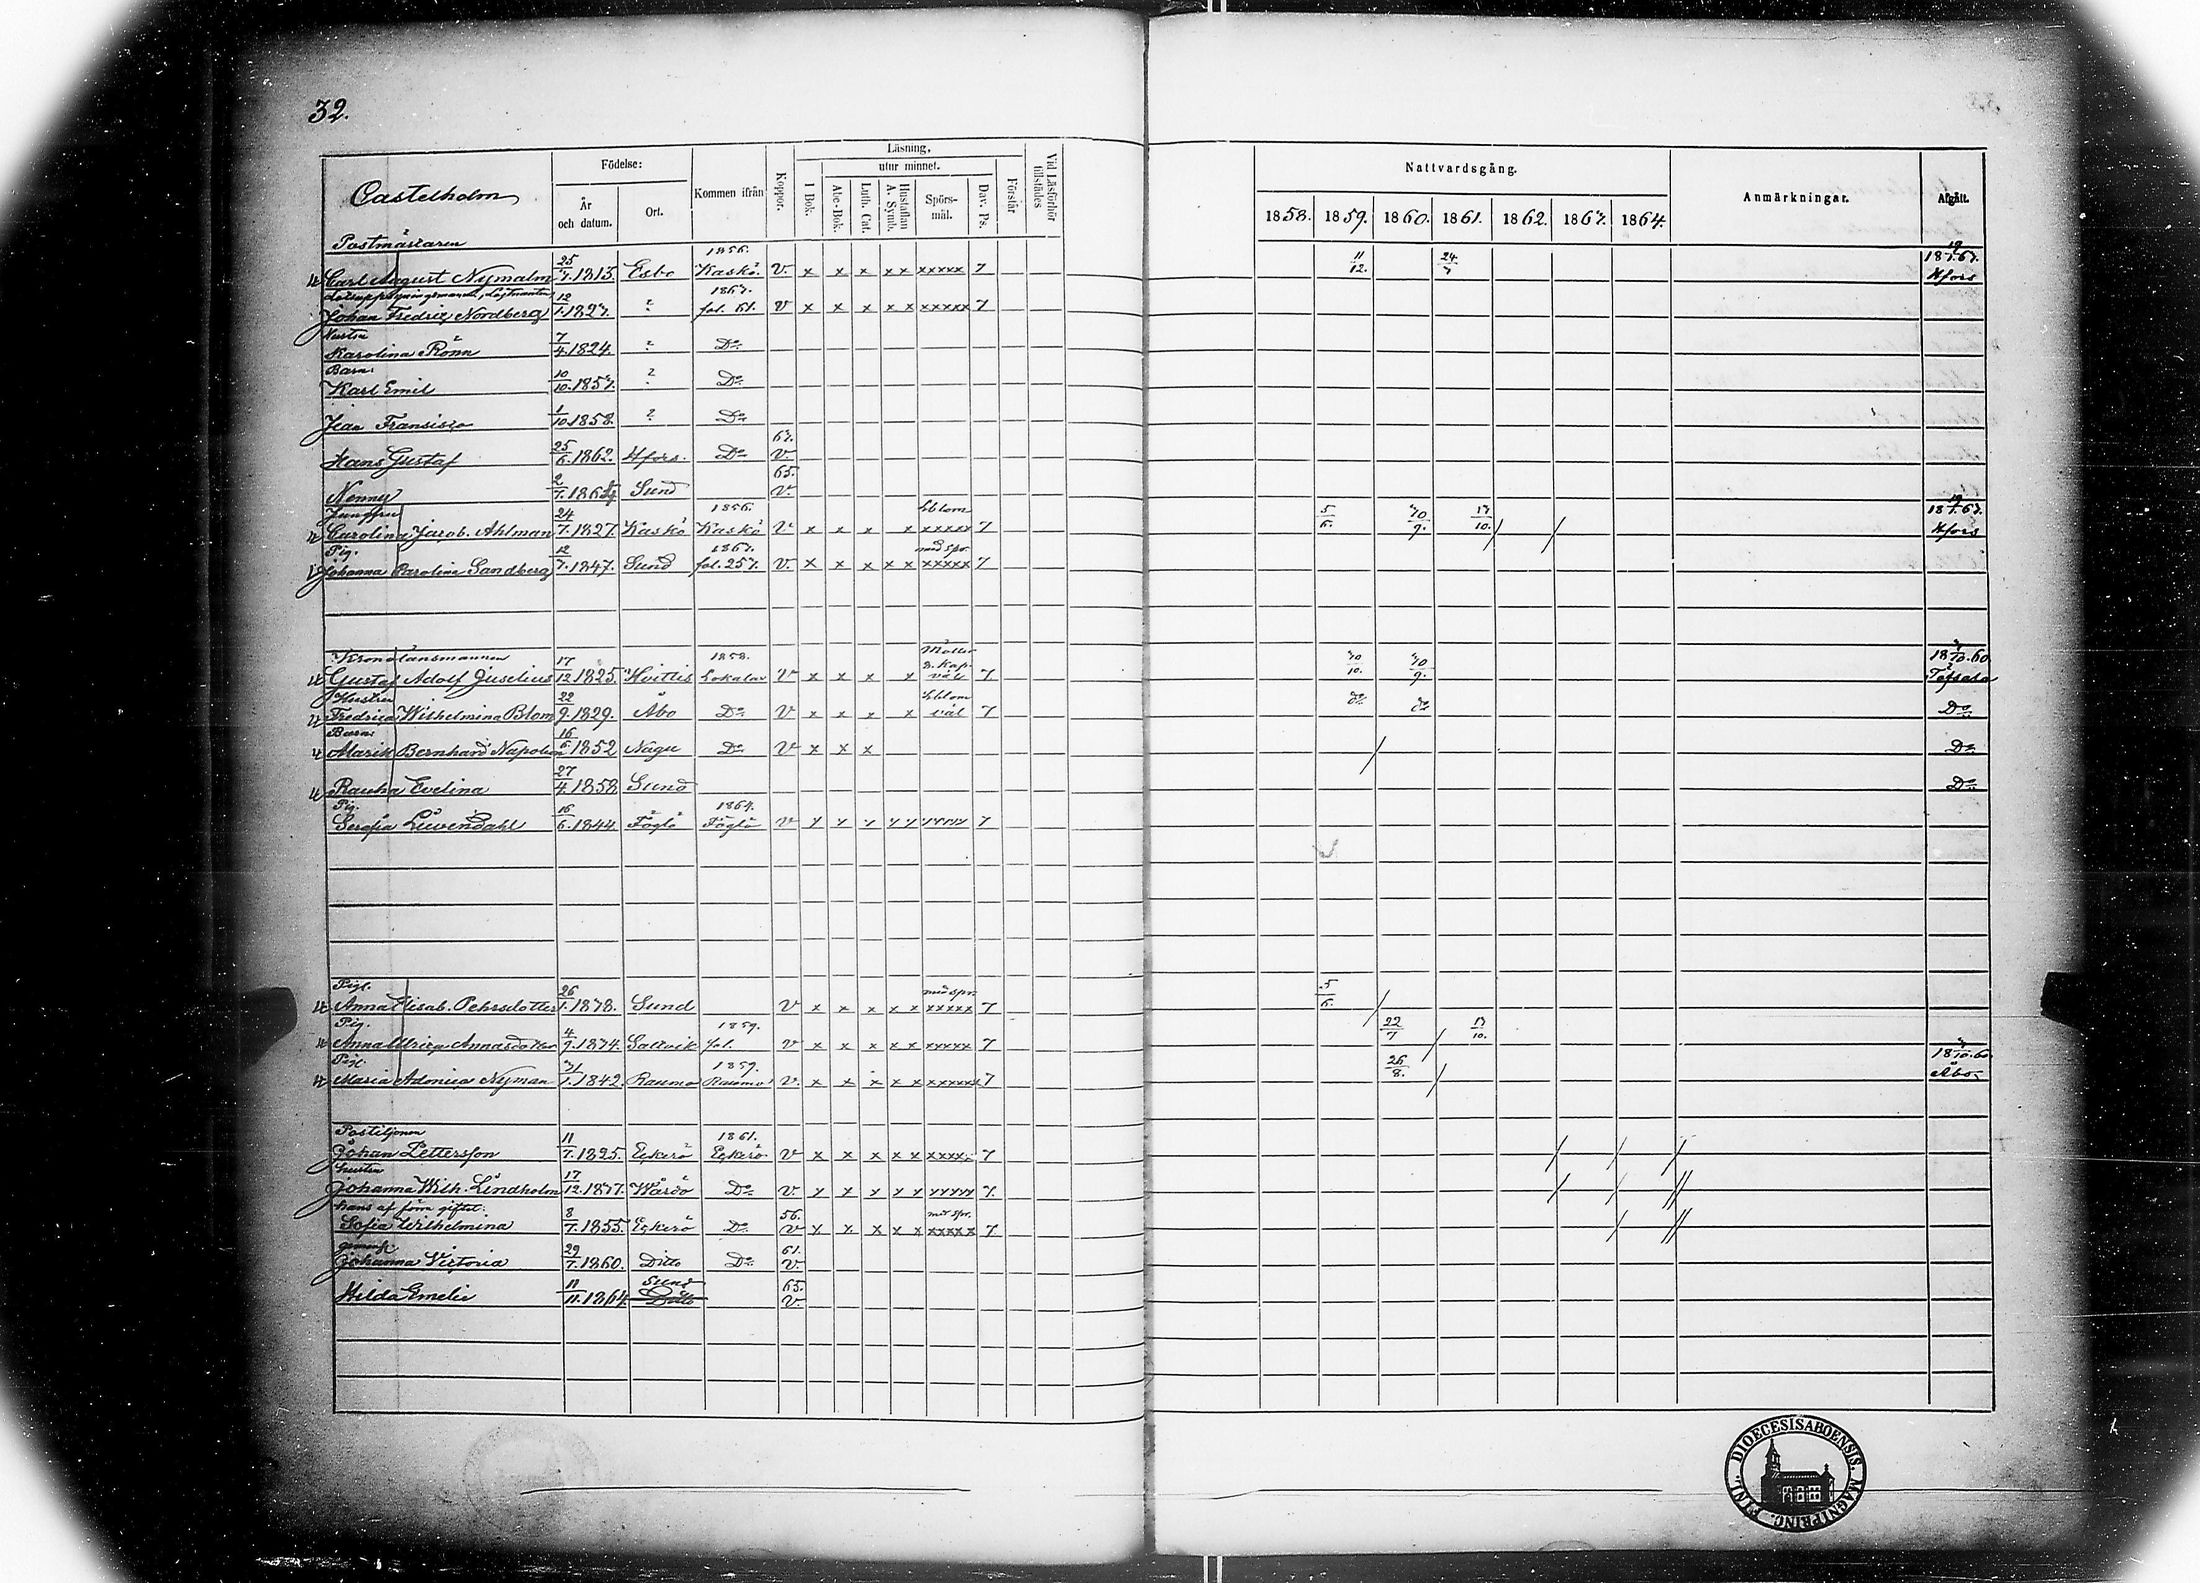 32.
Castelholm
Födelse:
År och datum.
Ort.
Kommen ifrån
Koppor.
Läsning,
utur minnet.
I Bok.
Abc-Bok.
Luth. Cat.
Hustaflan A. Symb.
Spörsmål.
Dav. Ps.
Förstår
Vid Läsförhör tillstädes
Nattvardsgång.
1858. 1859. 1860. 1861. 1862. 1863. 1864.
Anmärkningar.
Afgått.
Postmästaren 1856.
Carl August Nymalm 25/7.1813. Esbo Kaskö. v. x x x x x xxxxx 7 11/12. 24/7 Hfors
1863.
Johan Fredric Nordberg 12/1.1823. ? fol. 61. v x x x x x xxxxx 7
Hustru
Karolina Rönn 7/4.1824. ? Do
Barn:
Karl Emil 10/10.1857. ? Do
Jean Fransisco 1/10.1858. ? Do
Hans Gustaf 25/6.1862. Hfors. Do 63. v.
Nenny 2/7.1864 Sund 65. v.
Jungfru 1856.
Carolina Jacob. Ahlman 24/7.1827. Kaskö Kaskö v x x x x xxxxx 7 5/6. 30/9. 13/10. Hfors
Pig. 1863. med spr.
Johanna Carolina Sandberg 12/7.1847. Sund fol. 257. v. x x x x x xxxxx 7
Kronolänsmannen 1858.
Gustaf Adolf Juselius 17/12 1825. Hvittis Lokalax v x x x x väl 7 30/10. 30/9. 18 3/10.60
Hustrun
Fredrica Wilhelmina Blom 22/9.1829. Åbo Do v x x x x väl 7 do do Do
Barn:
Alarik Bernhard Napoleon 16/6 1852 Nagu Do v x x x Do
Rauha Evelina 27/4.1858 Sund Do
Pig. 1864.
Serafia Lüvendahl 16/6.1844. Föglö Föglö v
Pig. med spr.
Anna Elisab. Pehrsdotter 26/1.1838. Sund v x x x x x xxxxx 7 5/6.
Pig. 1859.
Anna Ulrica Annasdotter 4/9.1834. Saltvik fol. v x x x x x xxxxx 7 22/7 13/10.
Pig. 1859.
Maria Adonica Nyman 31/1.1842. Raumo Raumo v. x x x x x xxxxxx 7 26/8. 18 3/10.60. Åbo
Postiljonen 1861.
Johan Pettersson 11/7.1825. Eckerö Eckerö v x x x x x xxxx. 7
hustru
Johanna Wilh. Lindholm 17/12.1837. Wårdö Do v.
hans af förra giftet: 56. med spr.
Sofia Wilhelmina 8/7.1855. Eckerö Do v x x x x x xxxxx 7.
Johanna Victoria 29/7.1860. Ditto Do 61. v.
Hilda Emelie 11/11.1864. Sund Ditto 65. v.
DIOECESIS ABOENSIS. MAGNI PRINC. FINL.